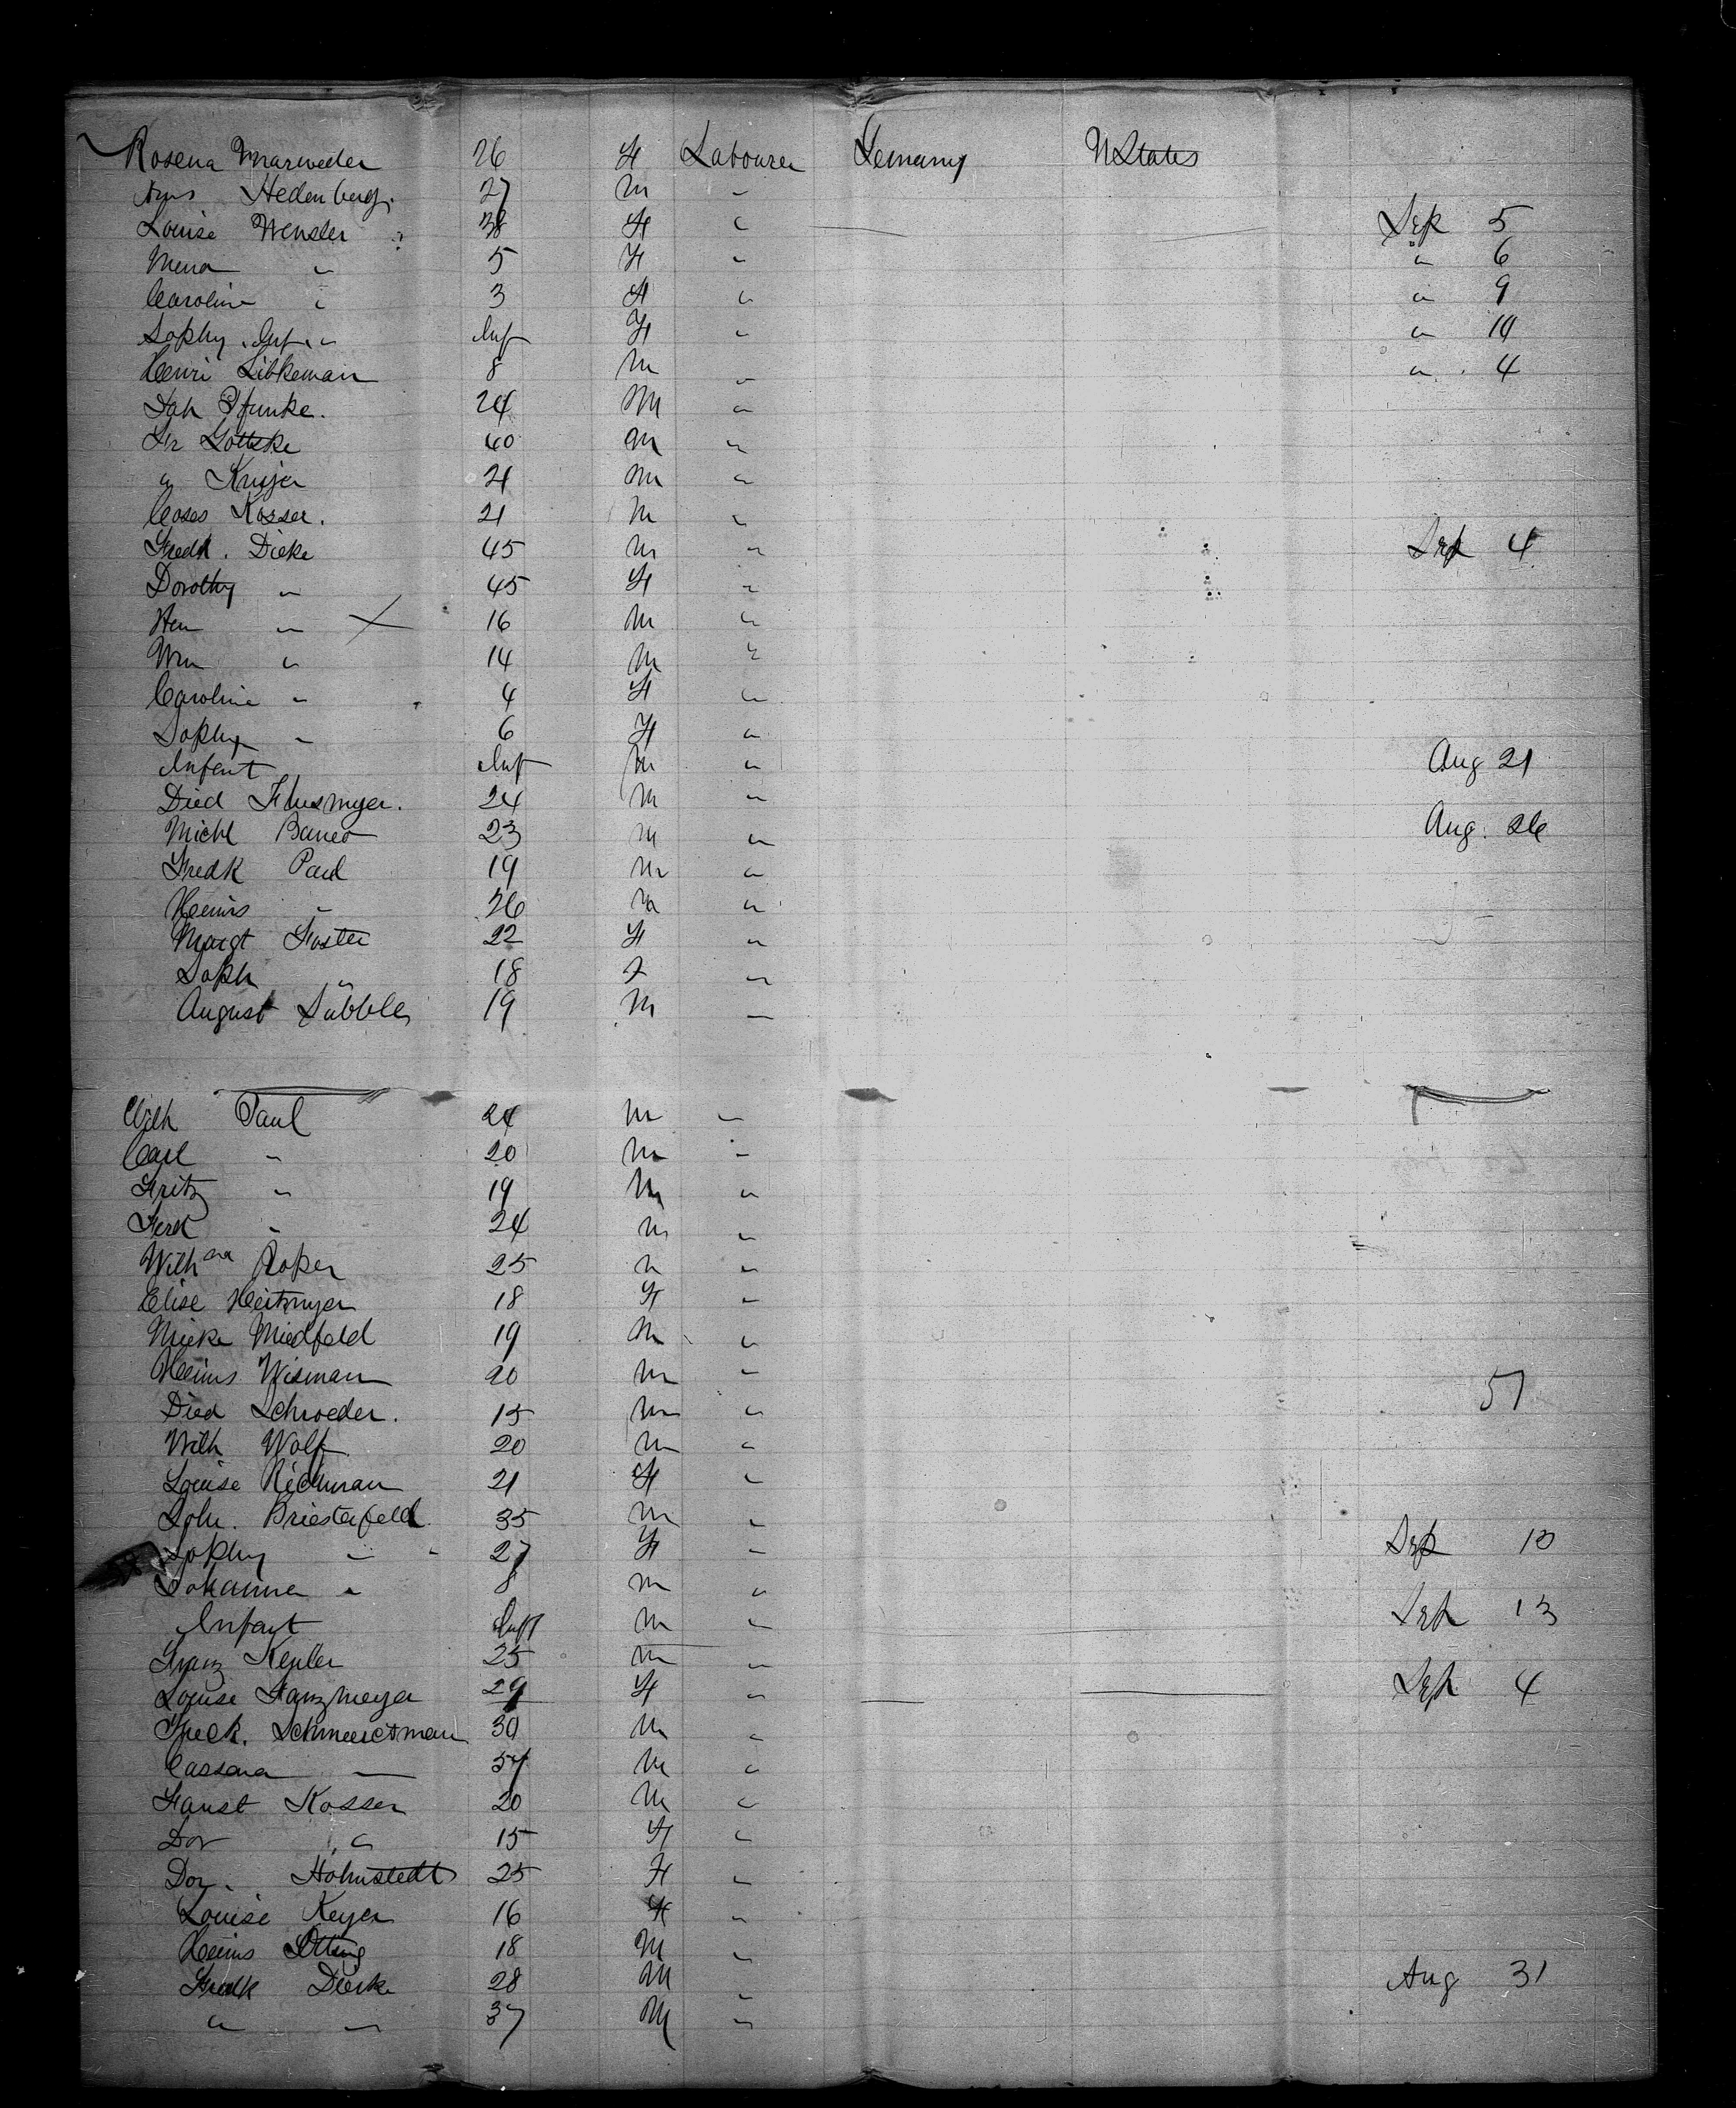 Rosena Marweder 26 F Labourer Germany U States
Hedenberg. 27 M "
Louise Wensler 38 F " Sep 5
Mena " 5 F " " 6
Caroline " 3 F " " 9
Sophy. Inf. " Inf F " " 14
Henri Libkeman 8 M " " 4
Joh Pfunke. 24 M "
Fr Gottske 40 M "
" Kruger 21 M "
Kosser. 21 M "
Fredk. Dieke 45 M " Sep 4
Dorothy " 45 F "
Hen " 16 M "
Wm " 14 M "
Caroline " 4 F "
Sophy " 6 F "
Infant Inf M " Aug 21
Died Flusmyer. 24 M "
Michl 23 M " Aug. 26
Fredk Paul 19 M "
Heinrs " 26 M "
Margt Foster 22 F "
Soph " 18 F "
August Lübble 19 M "
Wilh Paul 24 M "
Carl " 20 M "
Fritz " 19 M "
" 24 M "
Wilhna Roper 25 M "
Elise Heitmyer 18 F "
Mieke Miedfeld 19 M "
Heinrs Wisman 20 M "
57
Died Schroeder. 15 M "
Wilh Wolf 20 M "
Louise Richman 21 F "
Joh. Briesterfeld. 35 M "
Sophy " 27 F " Sep 10
Johanna " 8 M "
Infant Inft M " Sep 13
Franz Kepler 25 M "
Louise Fanzmeyer 29 F " Sep 4
Fredk. 30 M "
" M "
Faust Kosser 20 M "
Dor " 15 F "
Dor. Holmstedt 25 F "
Louise Keyer 16 F "
Heinrs Otting 18 M "
Fredk Dierke 28 M " Aug 31
" " 37 M "